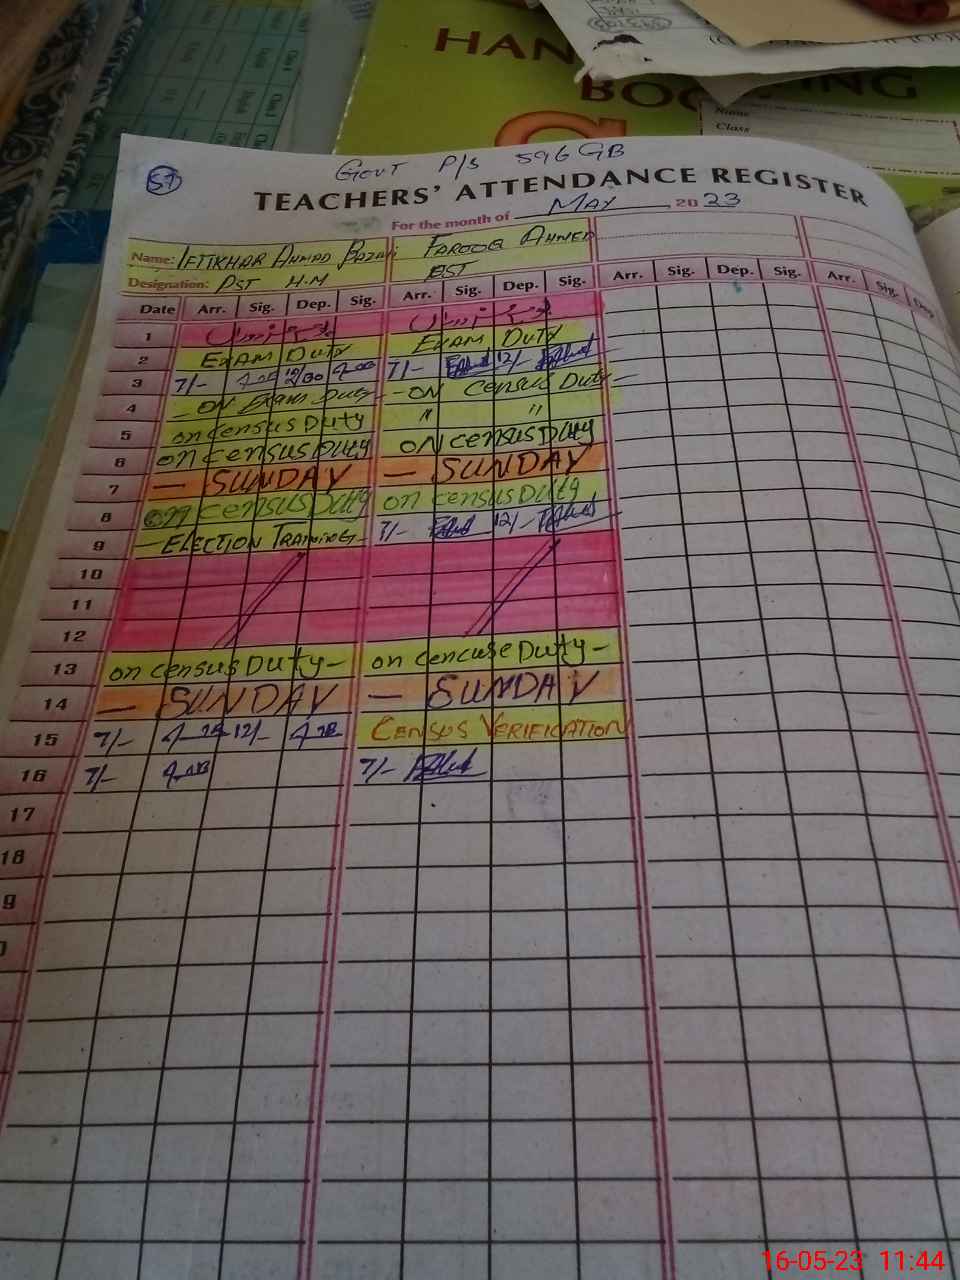 HAN
BOO
Name
Class
GOVT P/S 596 GB
57
TEACHERS' ATTENDANCE REGISTER
For the month of MAY, 20 23
Name: IFTIKHAR AHMAD FAROOQ AHMED
Designation: PST H.M PST
Date Arr. Sig. Dep. Sig. Arr. Sig. Dep. Sig. Arr. Sig. Dep. Sig. Arr. Sig. Dep
1
2 EXAM DUTY EXAM DUTY
3 7/- 7/- 12/-
4 - ON Exam Duty - - ON Census Duty -
5 on census DUTY " "
6 on census DUTY ON census Duty
7 - SUNDAY - SUNDAY
8 on census Duty on census Duty
9 - ELECTION TRAINING - 7/- 12/-
10
11
12
13 on census DUTY - on cencuse Duty -
14 - SUNDAY - SUNDAY
15 7/- 12/- CENSUS VERIFICATION
16 7/- 7/-
17
18
9
16-05-23 11:44